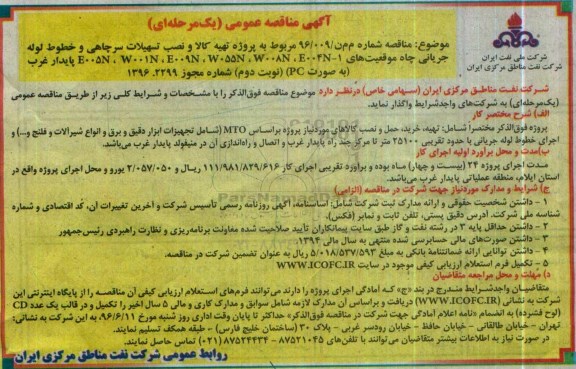 آگهی مناقصه عمومی (یک‌مرحله‌ای)
موضوع: مناقصه شماره م‌م‌ن/۹۶/۰۰۹ مربوط به پروژه تهیه کالا و نصب تسهیلات سرچاهی و خطوط لوله
جریانی چاه موقعیت‌های E۰۰۵N ، W۰۰۱N ، E۰۰۹N ، W۰۵۵N ، W۰۰۸N ، E۰۰۴N-۱ پایدار غرب
(به صورت PC) (نوبت دوم) شماره مجوز ۱۳۹۶.۲۲۹۹
شرکت ملی نفت ایران
شرکت نفت مناطق مرکزی ایران
شرکت نفت مناطق مرکزی ایران (سهامی خاص) درنظر دارد موضوع مناقصه فوق‌الذکر را با مشخصات و شرایط کلی زیر از طریق مناقصه عمومی
(یک‌مرحله‌ای) به شرکت‌های واجدشرایط واگذار نماید.
الف) شرح مختصر کار
پروژه فوق‌الذکر مختصراً شامل: تهیه، خرید، حمل و نصب کالاهای موردنیاز پروژه براساس MTO (شامل تجهیزات ابزار دقیق و برق و انواع شیرآلات و فلنج و...) و
اجرای خطوط لوله جریانی با حدود تقریبی ۲۵۱۰۰ متر تا مرکز چند راه پایدار غرب و اتصال و راه‌اندازی آن در منیفولد پایدار غرب می‌باشد.
ب)مدت و محل برآورد اولیه اجرای کار
مدت اجرای پروژه ۲۴ (بیست و چهار) ماه بوده و برآورد تقریبی اجرای کار ۱۱۱/۹۸۱/۸۳۹/۶۱۶ ریال و ۲/۰۵۷/۰۵۰ یورو و محل اجرای پروژه واقع در
استان ایلام، منطقه عملیاتی پایدار غرب می‌باشد.
ج) شرایط و مدارک موردنیاز جهت شرکت در مناقصه (الزامی)
۱ - داشتن شخصیت حقوقی و ارائه مدارک ثبت شرکت شامل: اساسنامه، آگهی روزنامه رسمی تأسیس شرکت و آخرین تغییرات آن، کد اقتصادی و شماره
شناسه ملی شرکت، آدرس دقیق پستی، تلفن ثابت و نمابر (فکس).
۲ - داشتن حداقل پایه ۳ در رشته نفت و گاز طبق سایت پیمانکاران تأیید صلاحیت شده معاونت برنامه‌ریزی و نظارت راهبردی رئیس‌جمهور
۳ - داشتن صورت‌های مالی حسابرسی شده منتهی به سال مالی ۱۳۹۴.
۴ - داشتن توانایی ارائه ضمانتنامه بانکی به مبلغ ۵/۰۱۸/۵۳۷/۵۹۳ ریال به عنوان تضمین شرکت در مناقصه.
۵ - تکمیل فرم استعلام ارزیابی کیفی موجود در سایت WWW.ICOFC.IR
د) مهلت و محل مراجعه متقاضیان
متقاضیان واجدشرایط مندرج در بند «ج» که آمادگی اجرای پروژه را دارند می‌توانند فرم‌های استعلام ارزیابی کیفی آن مناقصه را از پایگاه اینترنتی این
شرکت به نشانی (WWW.ICOFC.IR) دریافت و براساس آن مدارک لازمه شامل سوابق و مدارک کاری و مالی ۵ سال اخیر را تکمیل و در قالب یک عدد CD
(لوح فشرده) به انضمام «نامه اعلام آمادگی جهت شرکت در مناقصه فوق‌الذکر» حداکثر تا پایان وقت اداری روز شنبه مورخ ۹۶/۶/۱۱، به این شرکت به نشانی:
تهران - خیابان طالقانی - خیابان حافظ - خیابان رودسر غربی - پلاک ۳۰ (ساختمان خلیج فارس) - طبقه همکف تسلیم نمایند.
در صورت نیاز به اطلاعات بیشتر متقاضیان می‌توانند با تلفن‌های ۸۷۵۲۱۰۴۵ - ۸۷۵۲۴۴۳۴(۰۲۱) تماس حاصل نمایند.
روابط عمومی شرکت نفت مناطق مرکزی ایران